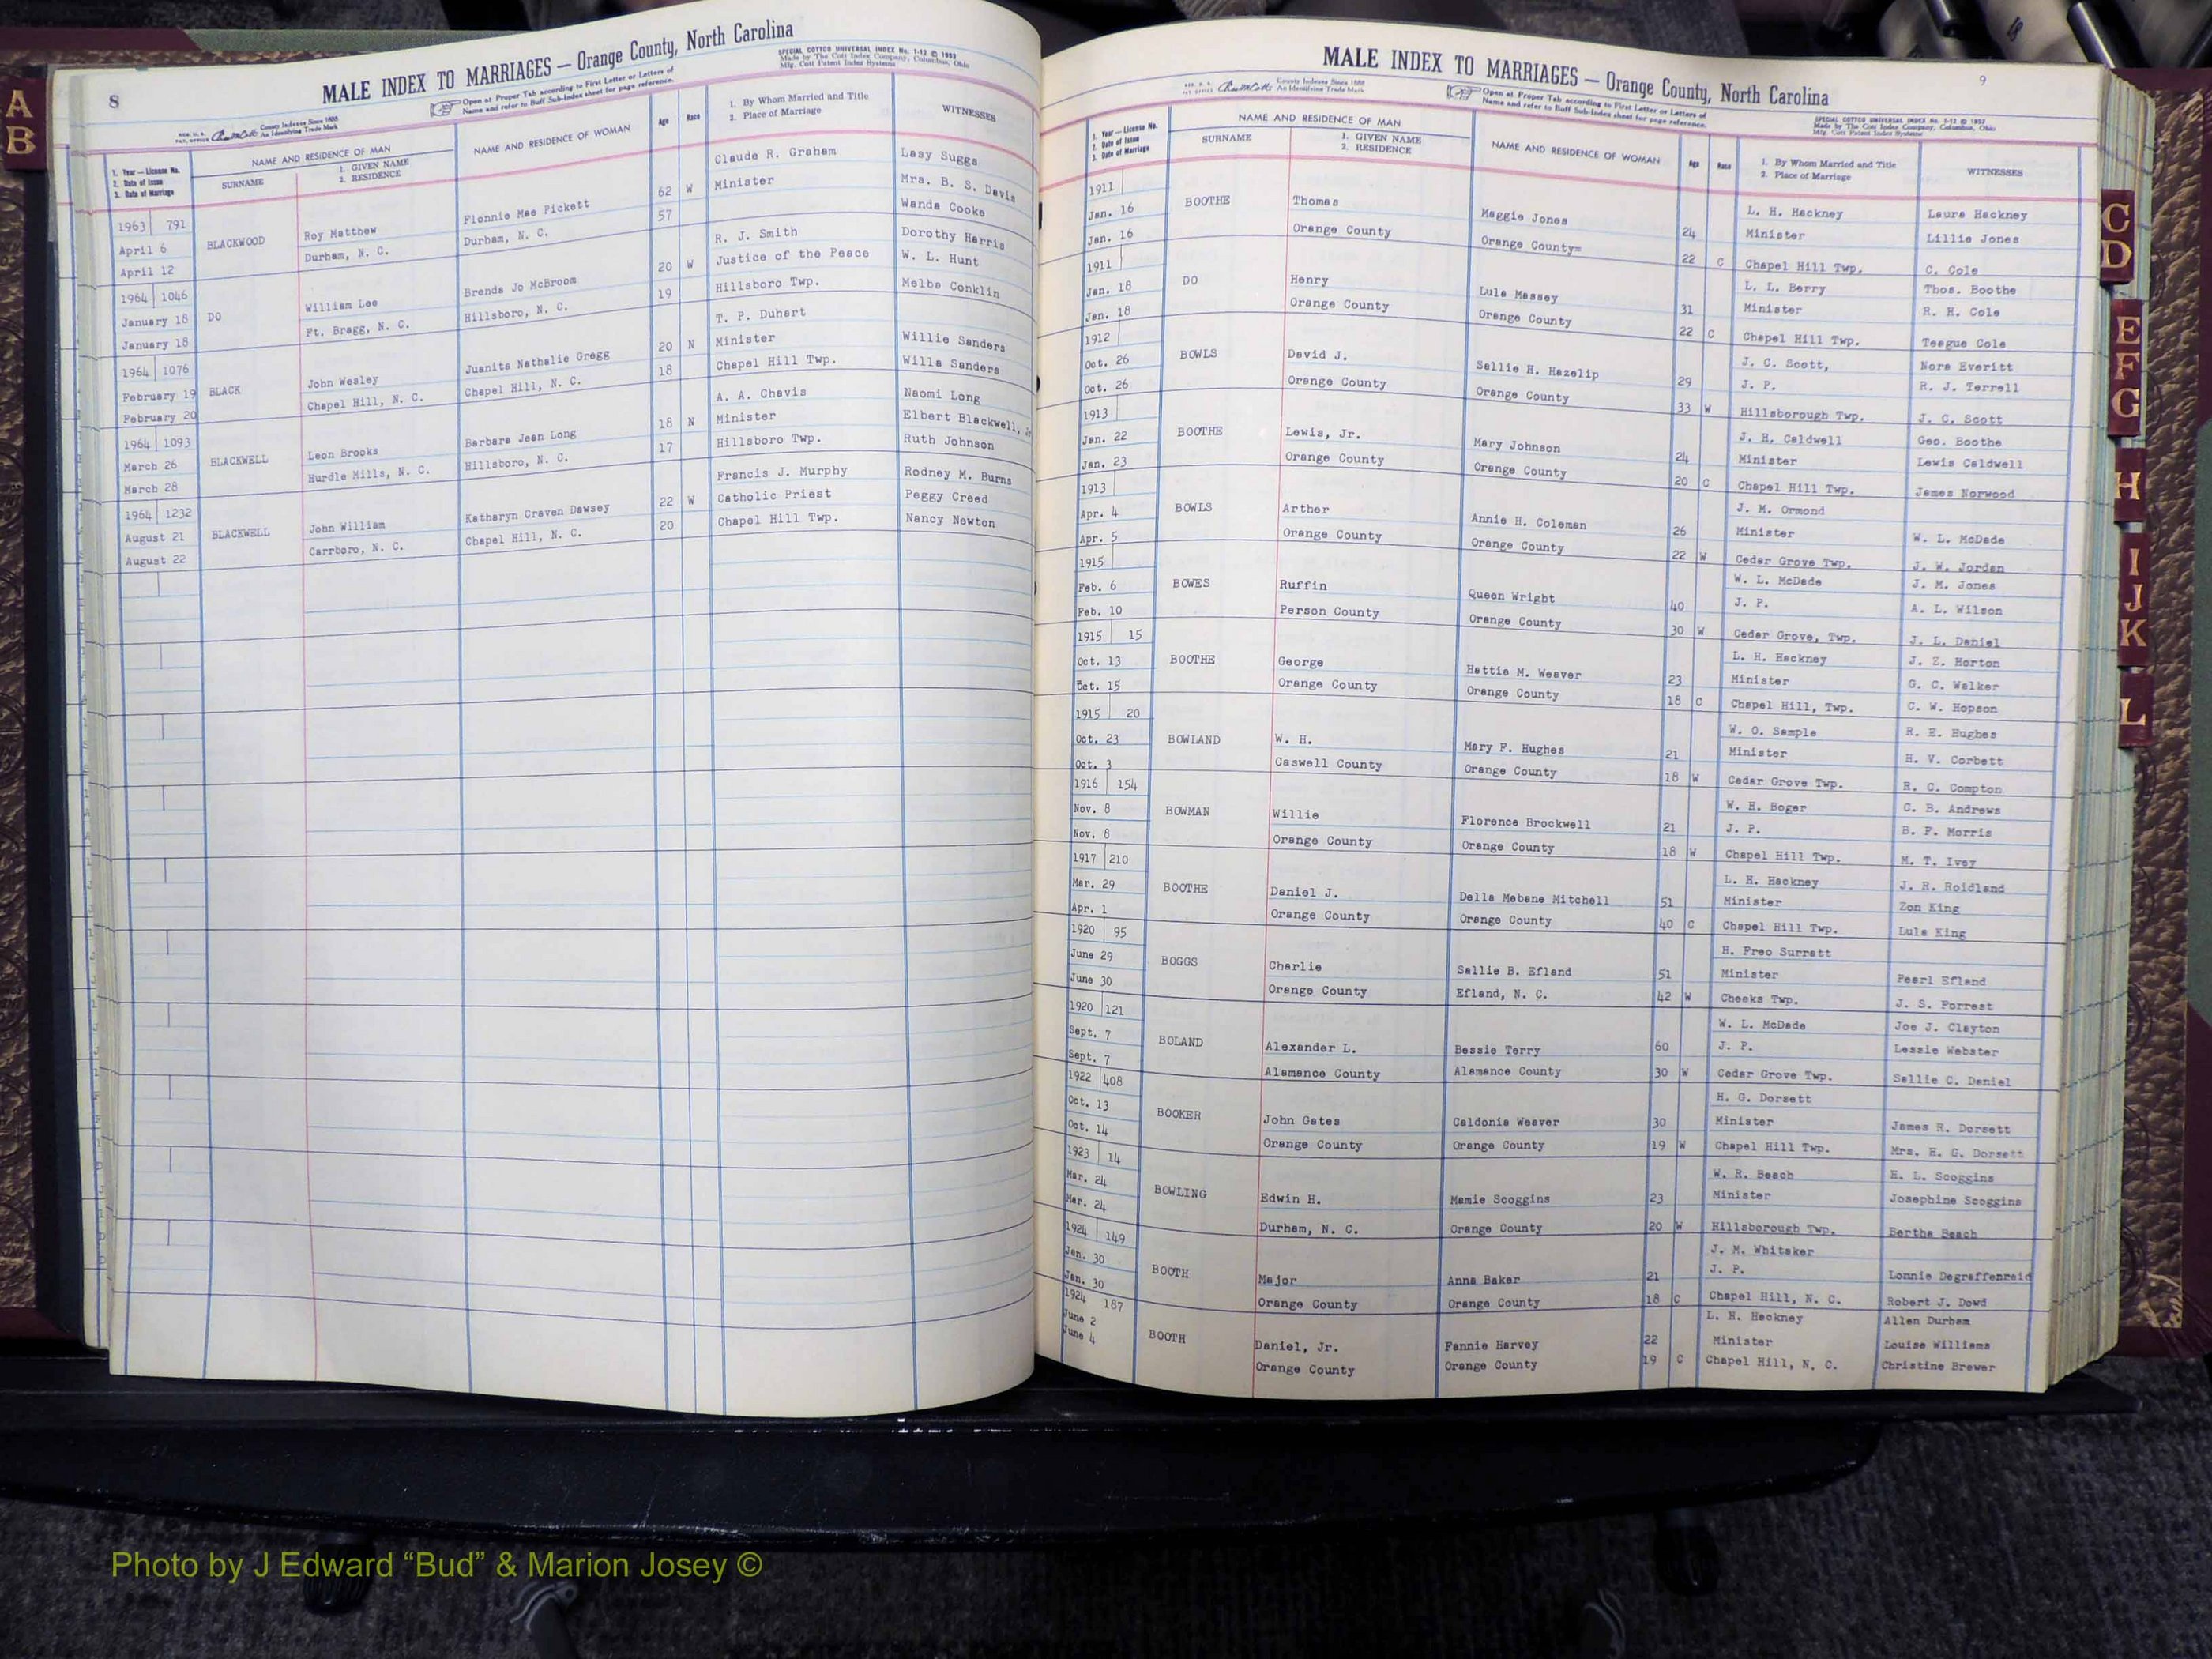 8
MALE INDEX TO MARRIAGES — Orange County, North Carolina
SPECIAL COTTCO UNIVERSAL INDEX No. 1-12 © 1953
Made by The Cott Index Company, Columbus, Ohio
Mfg. Cott Patent Index Systems
Open at Proper Tab according to First Letter or Letters of
Name and refer to Buff Sub-Index sheet for page reference.
County Indexes Since 1888
An Identifying Trade Mark
1. Year — License No.
2. Date of Issue
3. Date of Marriage
NAME AND RESIDENCE OF MAN
SURNAME
1. GIVEN NAME
2. RESIDENCE
NAME AND RESIDENCE OF WOMAN
Age
Race
1. By Whom Married and Title
2. Place of Marriage
WITNESSES
1963 791 Claude R. Graham Lasy Suggs
April 6 BLACKWOOD Roy Matthew Flonnie Mae Pickett 62 W Minister Mrs. B. S. Davis
April 12 Durham, N. C. Durham, N. C. 57 Wanda Cooke
1964 1046 R. J. Smith Dorothy Harris
January 18 DO William Lee Brenda Jo McBroom 20 W Justice of the Peace W. L. Hunt
January 18 Ft. Bragg, N. C. Hillsboro, N. C. 19 Hillsboro Twp. Melba Conklin
1964 1076 T. P. Duhart
February 19 BLACK John Wesley Juanita Nathalie Gregg 20 N Minister Willie Sanders
February 20 Chapel Hill, N. C. Chapel Hill, N. C. 18 Chapel Hill Twp. Willa Sanders
1964 1093 A. A. Chavis Naomi Long
March 26 BLACKWELL Leon Brooks Barbara Jean Long 18 N Minister Elbert Blackwell, Jr
March 28 Hurdle Mills, N. C. Hillsboro, N. C. 17 Hillsboro Twp. Ruth Johnson
1964 1232 Francis J. Murphy Rodney M. Burns
August 21 BLACKWELL John William Katharyn Craven Dawsey 22 W Catholic Priest Peggy Creed
August 22 Carrboro, N. C. Chapel Hill, N. C. 20 Chapel Hill Twp. Nancy Newton
9
MALE INDEX TO MARRIAGES — Orange County, North Carolina
SPECIAL COTTCO UNIVERSAL INDEX No. 1-12 © 1953
Made by The Cott Index Company, Columbus, Ohio
Mfg. Cott Patent Index Systems
Open at Proper Tab according to First Letter or Letters of
Name and refer to Buff Sub-Index sheet for page reference.
County Indexes Since 1888
An Identifying Trade Mark
1. Year — License No.
2. Date of Issue
3. Date of Marriage
NAME AND RESIDENCE OF MAN
SURNAME
1. GIVEN NAME
2. RESIDENCE
NAME AND RESIDENCE OF WOMAN
Age
Race
1. By Whom Married and Title
2. Place of Marriage
WITNESSES
1911 L. H. Hackney Laura Hackney
Jan. 16 BOOTHE Thomas Maggie Jones 24 Minister Lillie Jones
Jan. 16 Orange County Orange County= 22 C Chapel Hill Twp. C. Cole
1911 L. L. Berry Thos. Boothe
Jan. 18 DO Henry Lula Massey 31 Minister R. H. Cole
Jan. 18 Orange County Orange County 22 C Chapel Hill Twp. Teague Cole
1912 J. C. Scott, Nora Everitt
Oct. 26 BOWLS David J. Sallie H. Hazelip 29 J. P. R. J. Terrell
Oct. 26 Orange County Orange County 33 W Hillsborough Twp. J. C. Scott
1913 J. H. Caldwell Geo. Boothe
Jan. 22 BOOTHE Lewis, Jr. Mary Johnson 24 Minister Lewis Caldwell
Jan. 23 Orange County Orange County 20 C Chapel Hill Twp. James Norwood
1913 J. M. Ormond
Apr. 4 BOWLS Arther Annie H. Coleman 26 Minister W. L. McDade
Apr. 5 Orange County Orange County 22 W Cedar Grove Twp. J. W. Jordan
1915 W. L. McDade J. M. Jones
Feb. 6 BOWES Ruffin Queen Wright 40 J. P. A. L. Wilson
Feb. 10 Person County Orange County 30 W Cedar Grove, Twp. J. L. Daniel
1915 15 L. H. Hackney J. Z. Horton
Oct. 13 BOOTHE George Hattie M. Weaver 23 Minister G. C. Walker
Oct. 15 Orange County Orange County 18 C Chapel Hill, Twp. C. W. Hopson
1915 20 W. O. Sample R. E. Hughes
Oct. 23 BOWLAND W. H. Mary F. Hughes 21 Minister H. V. Corbett
Oct. 3 Caswell County Orange County 18 W Cedar Grove Twp. R. C. Compton
1916 154 W. H. Boger C. B. Andrews
Nov. 8 BOWMAN Willie Florence Brockwell 21 J. P. B. F. Morris
Nov. 8 Orange County Orange County 18 W Chapel Hill Twp. M. T. Ivey
1917 210 L. H. Hackney J. R. Roidland
Mar. 29 BOOTHE Daniel J. Della Mebane Mitchell 51 Minister Zon King
Apr. 1 Orange County Orange County 40 C Chapel Hill Twp. Lula King
1920 95 H. Freo Surratt
June 29 BOGGS Charlie Sallie B. Efland 51 Minister Pearl Efland
June 30 Orange County Efland, N. C. 42 W Cheeks Twp. J. S. Forrest
1920 121 W. L. McDade Joe J. Clayton
Sept. 7 BOLAND Alexander L. Bessie Terry 60 J. P. Lessie Webster
Sept. 7 Alamance County Alamance County 30 W Cedar Grove Twp. Sallie C. Daniel
1922 408 H. G. Dorsett
Oct. 13 BOOKER John Gates Caldonia Weaver 30 Minister James R. Dorsett
Oct. 14 Orange County Orange County 19 W Chapel Hill Twp. Mrs. H. G. Dorsett
1923 14 W. R. Beach H. L. Scoggins
Mar. 24 BOWLING Edwin H. Mamie Scoggins 23 Minister Josephine Scoggins
Mar. 24 Durham, N. C. Orange County 20 W Hillsborough Twp. Bertha Beach
1924 149 J. M. Whitaker
Jan. 30 BOOTH Major Anna Baker 21 J. P. Lonnie Degraffenreid
Jan. 30 Orange County Orange County 18 C Chapel Hill, N. C. Robert J. Dowd
1924 187 L. H. Hackney Allen Durham
June 2 BOOTH Daniel, Jr. Fannie Harvey 22 Minister Louise Williams
June 4 Orange County Orange County 19 C Chapel Hill, N. C. Christine Brewer
A
B
C
D
E
F
G
H
I
J
K
L
Photo by J Edward “Bud” & Marion Josey ©